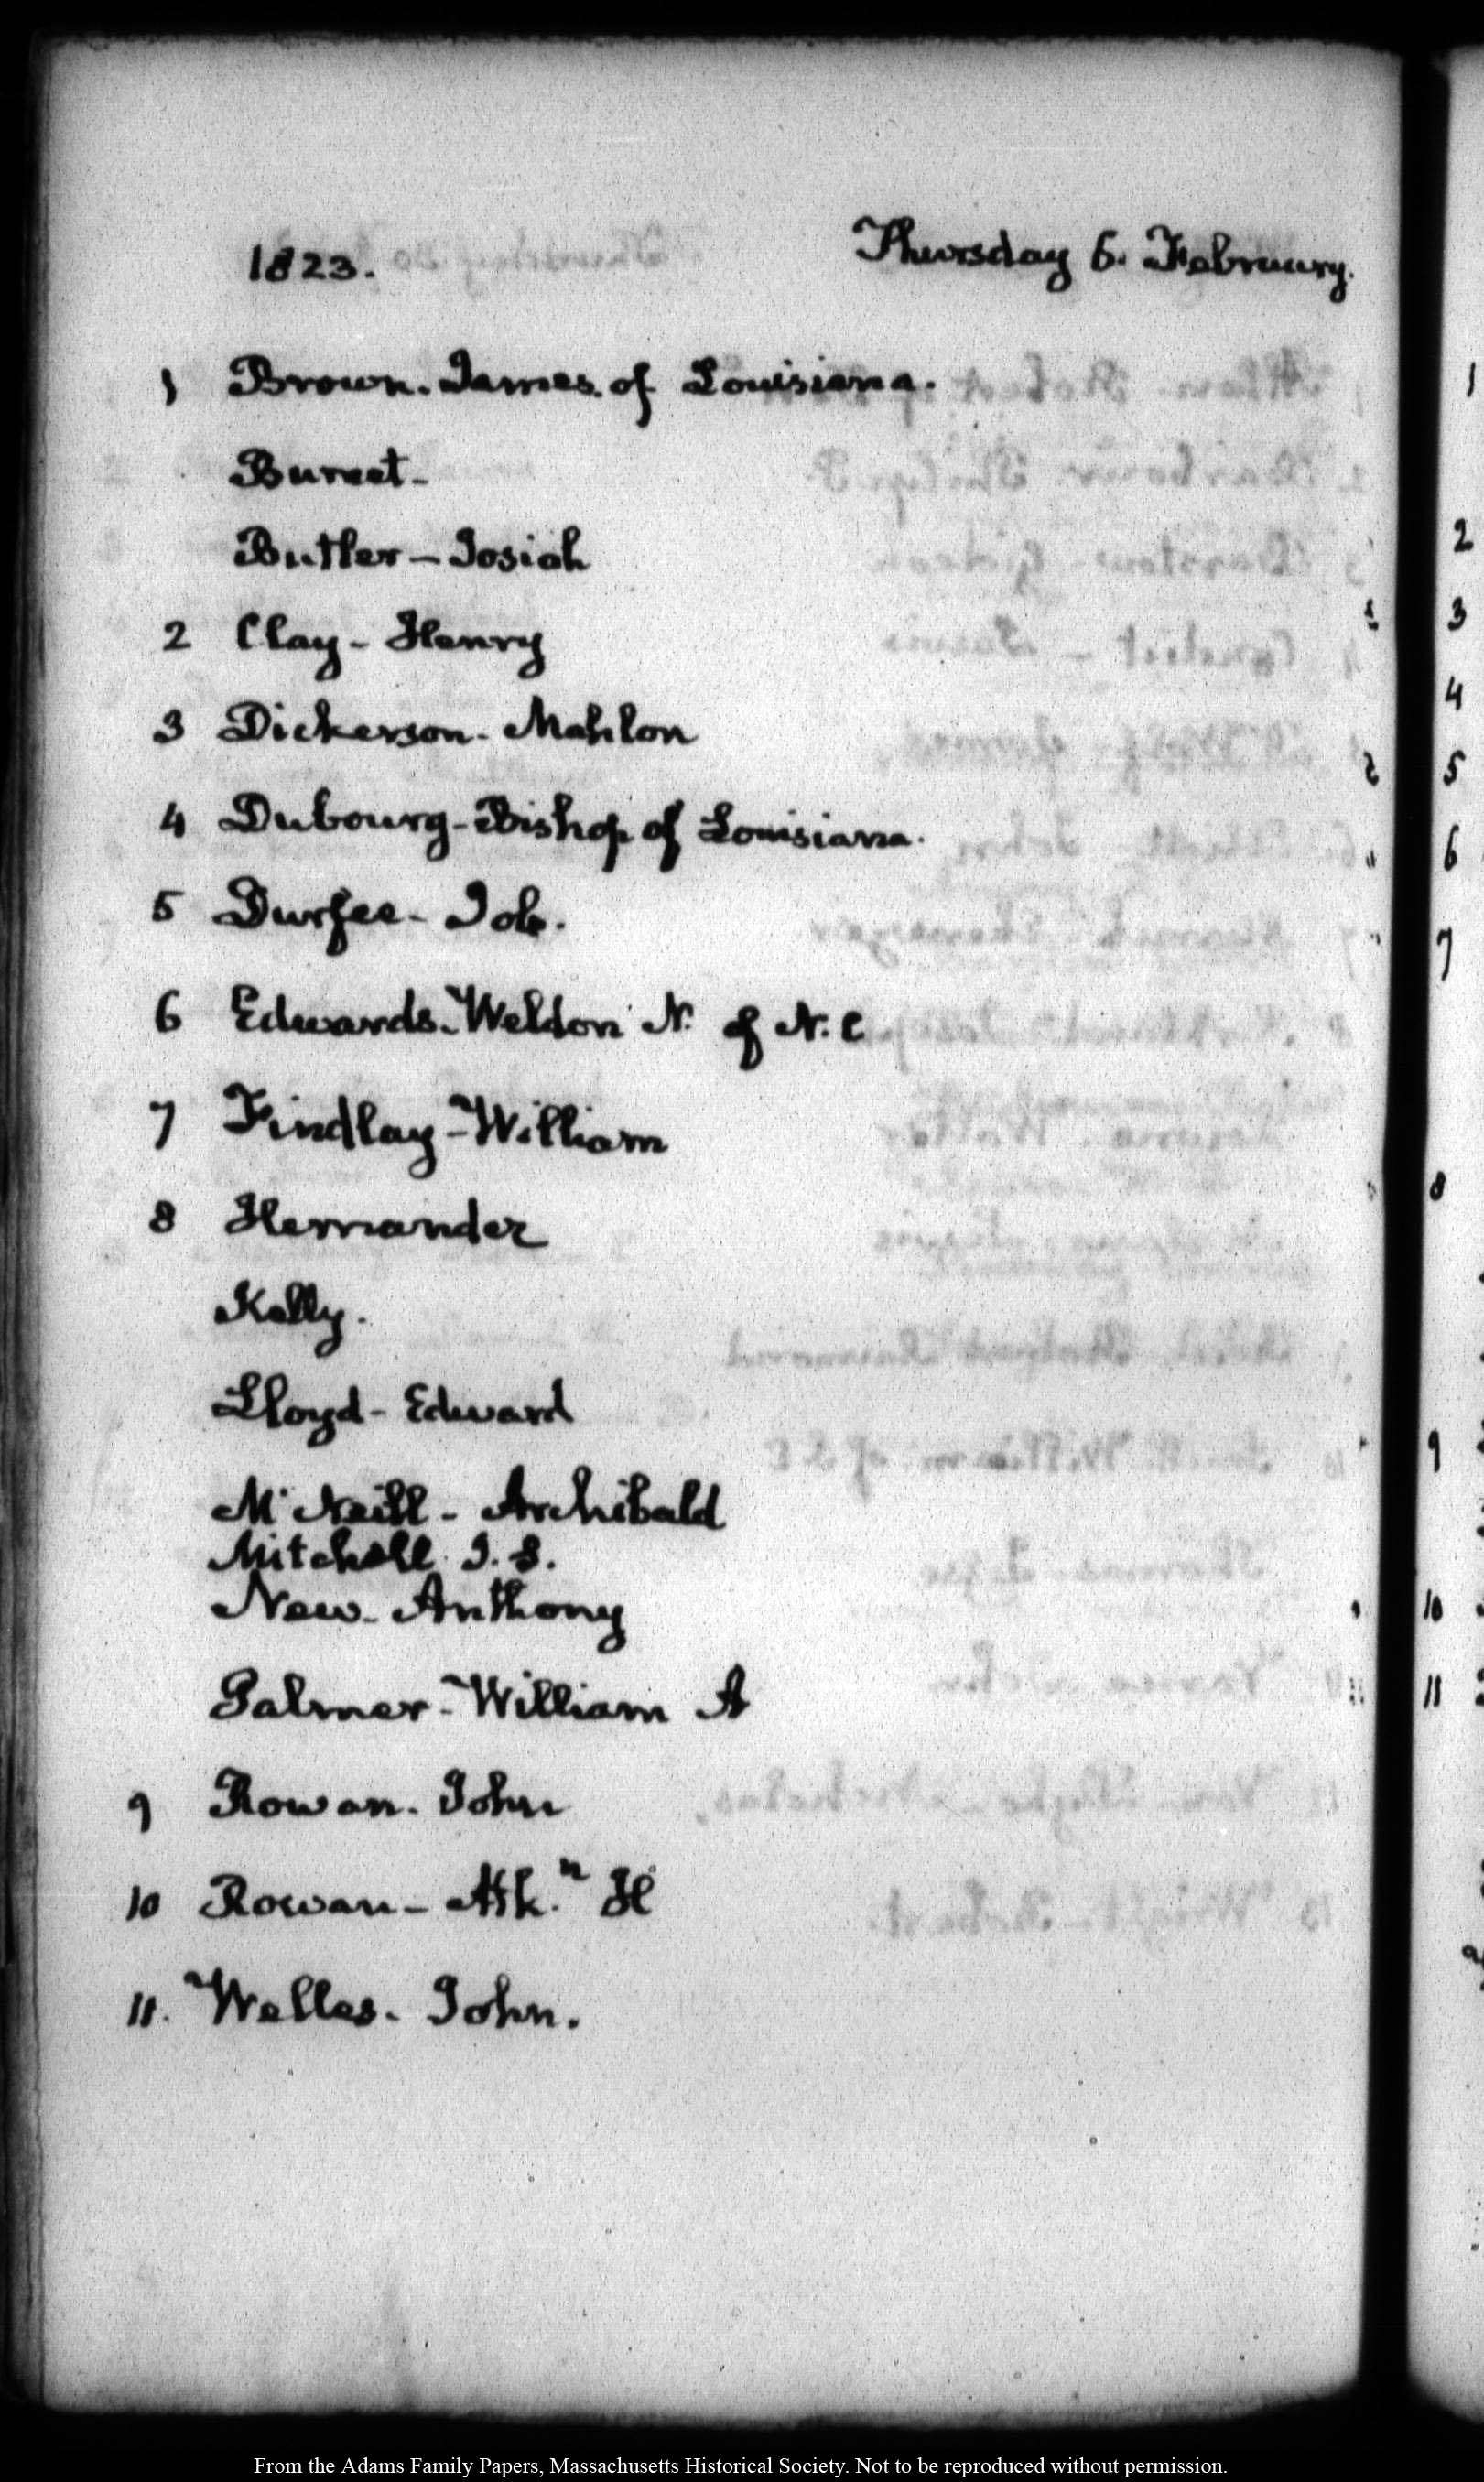 1823.
Thursday 6. February.
1 Brown. James. of Louisiana.
Burcet-
Butler - Josiah
2 Clay - Henry
3 Dickerson - Mahlon
4 Dubourg - Bishop of Louisiana.
5 Durfee - Job.
6 Edwards. Weldon N. of N. C
7 Findlay - William
8 Hernandez
Kelly.
Lloyd - Edward
Mc Neill - Archibald
Mitchell J. S.
New - Anthony
Palmer - William A
9 Rowan. John
10 Rowan - H
11. Welles - John.
1
2
3
4
5
6
7
8
9
10
11
From the Adams Family Papers, Massachusetts Historical Society. Not to be reproduced without permission.